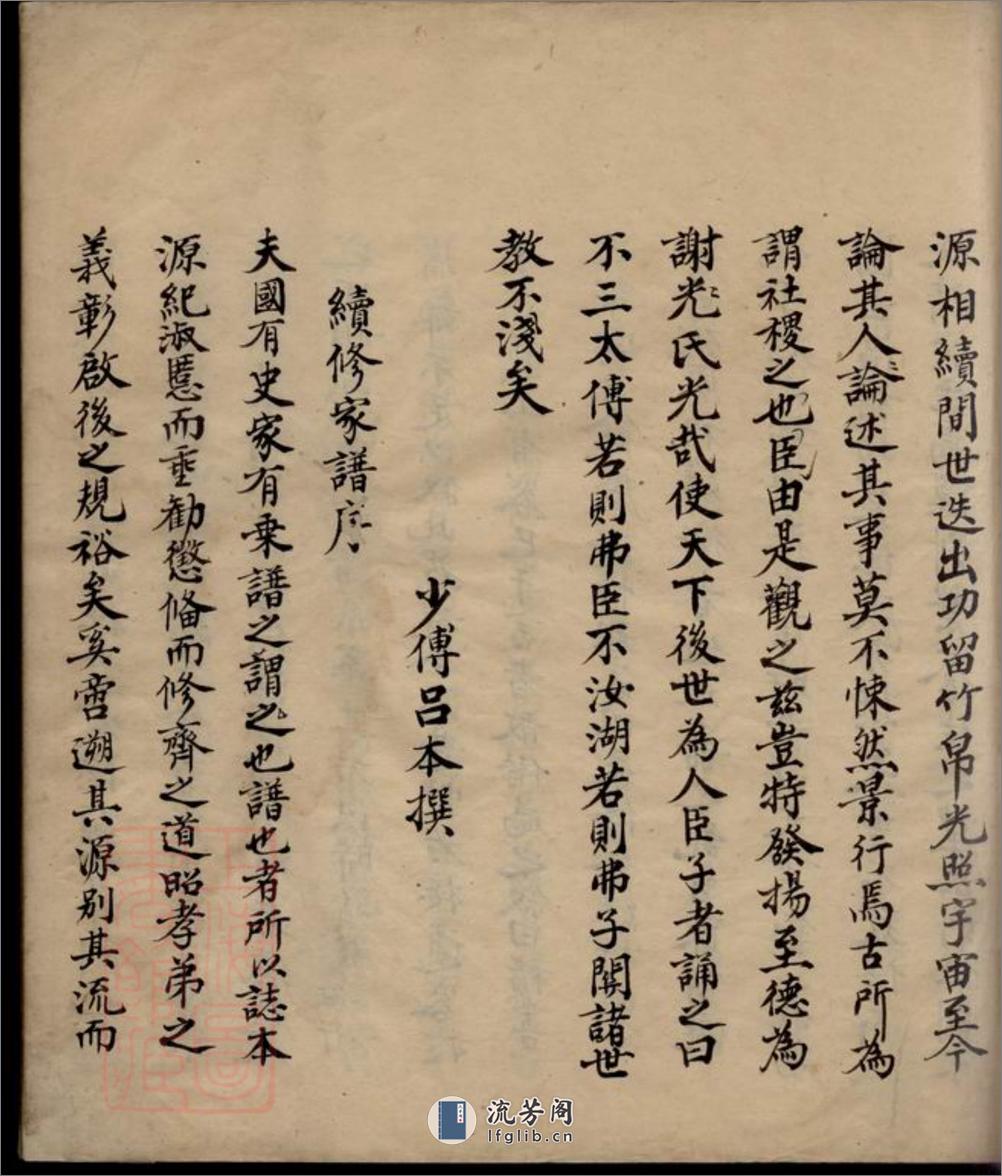 源相續間世迭出功留竹帛光照宇宙至今
論其人論述其事莫不悚然景行焉古所為
謂社稷之也臣由是觀之茲豈特發揚至德為
謝光氏光哉使天下後世為人臣子者誦之曰
不三太傅若則弗臣不汝湖若則弗子關諸世
教不淺矣
少傅呂本撰
續修家譜序
夫國有史家有乗譜之謂之也譜也者所以誌本
源紀淑慝而垂勸懲俻而修齊之道昭孝弟之
義彰啟後之規裕矣奚啻遡其源别其流而
流芳阁
lfglib.cn